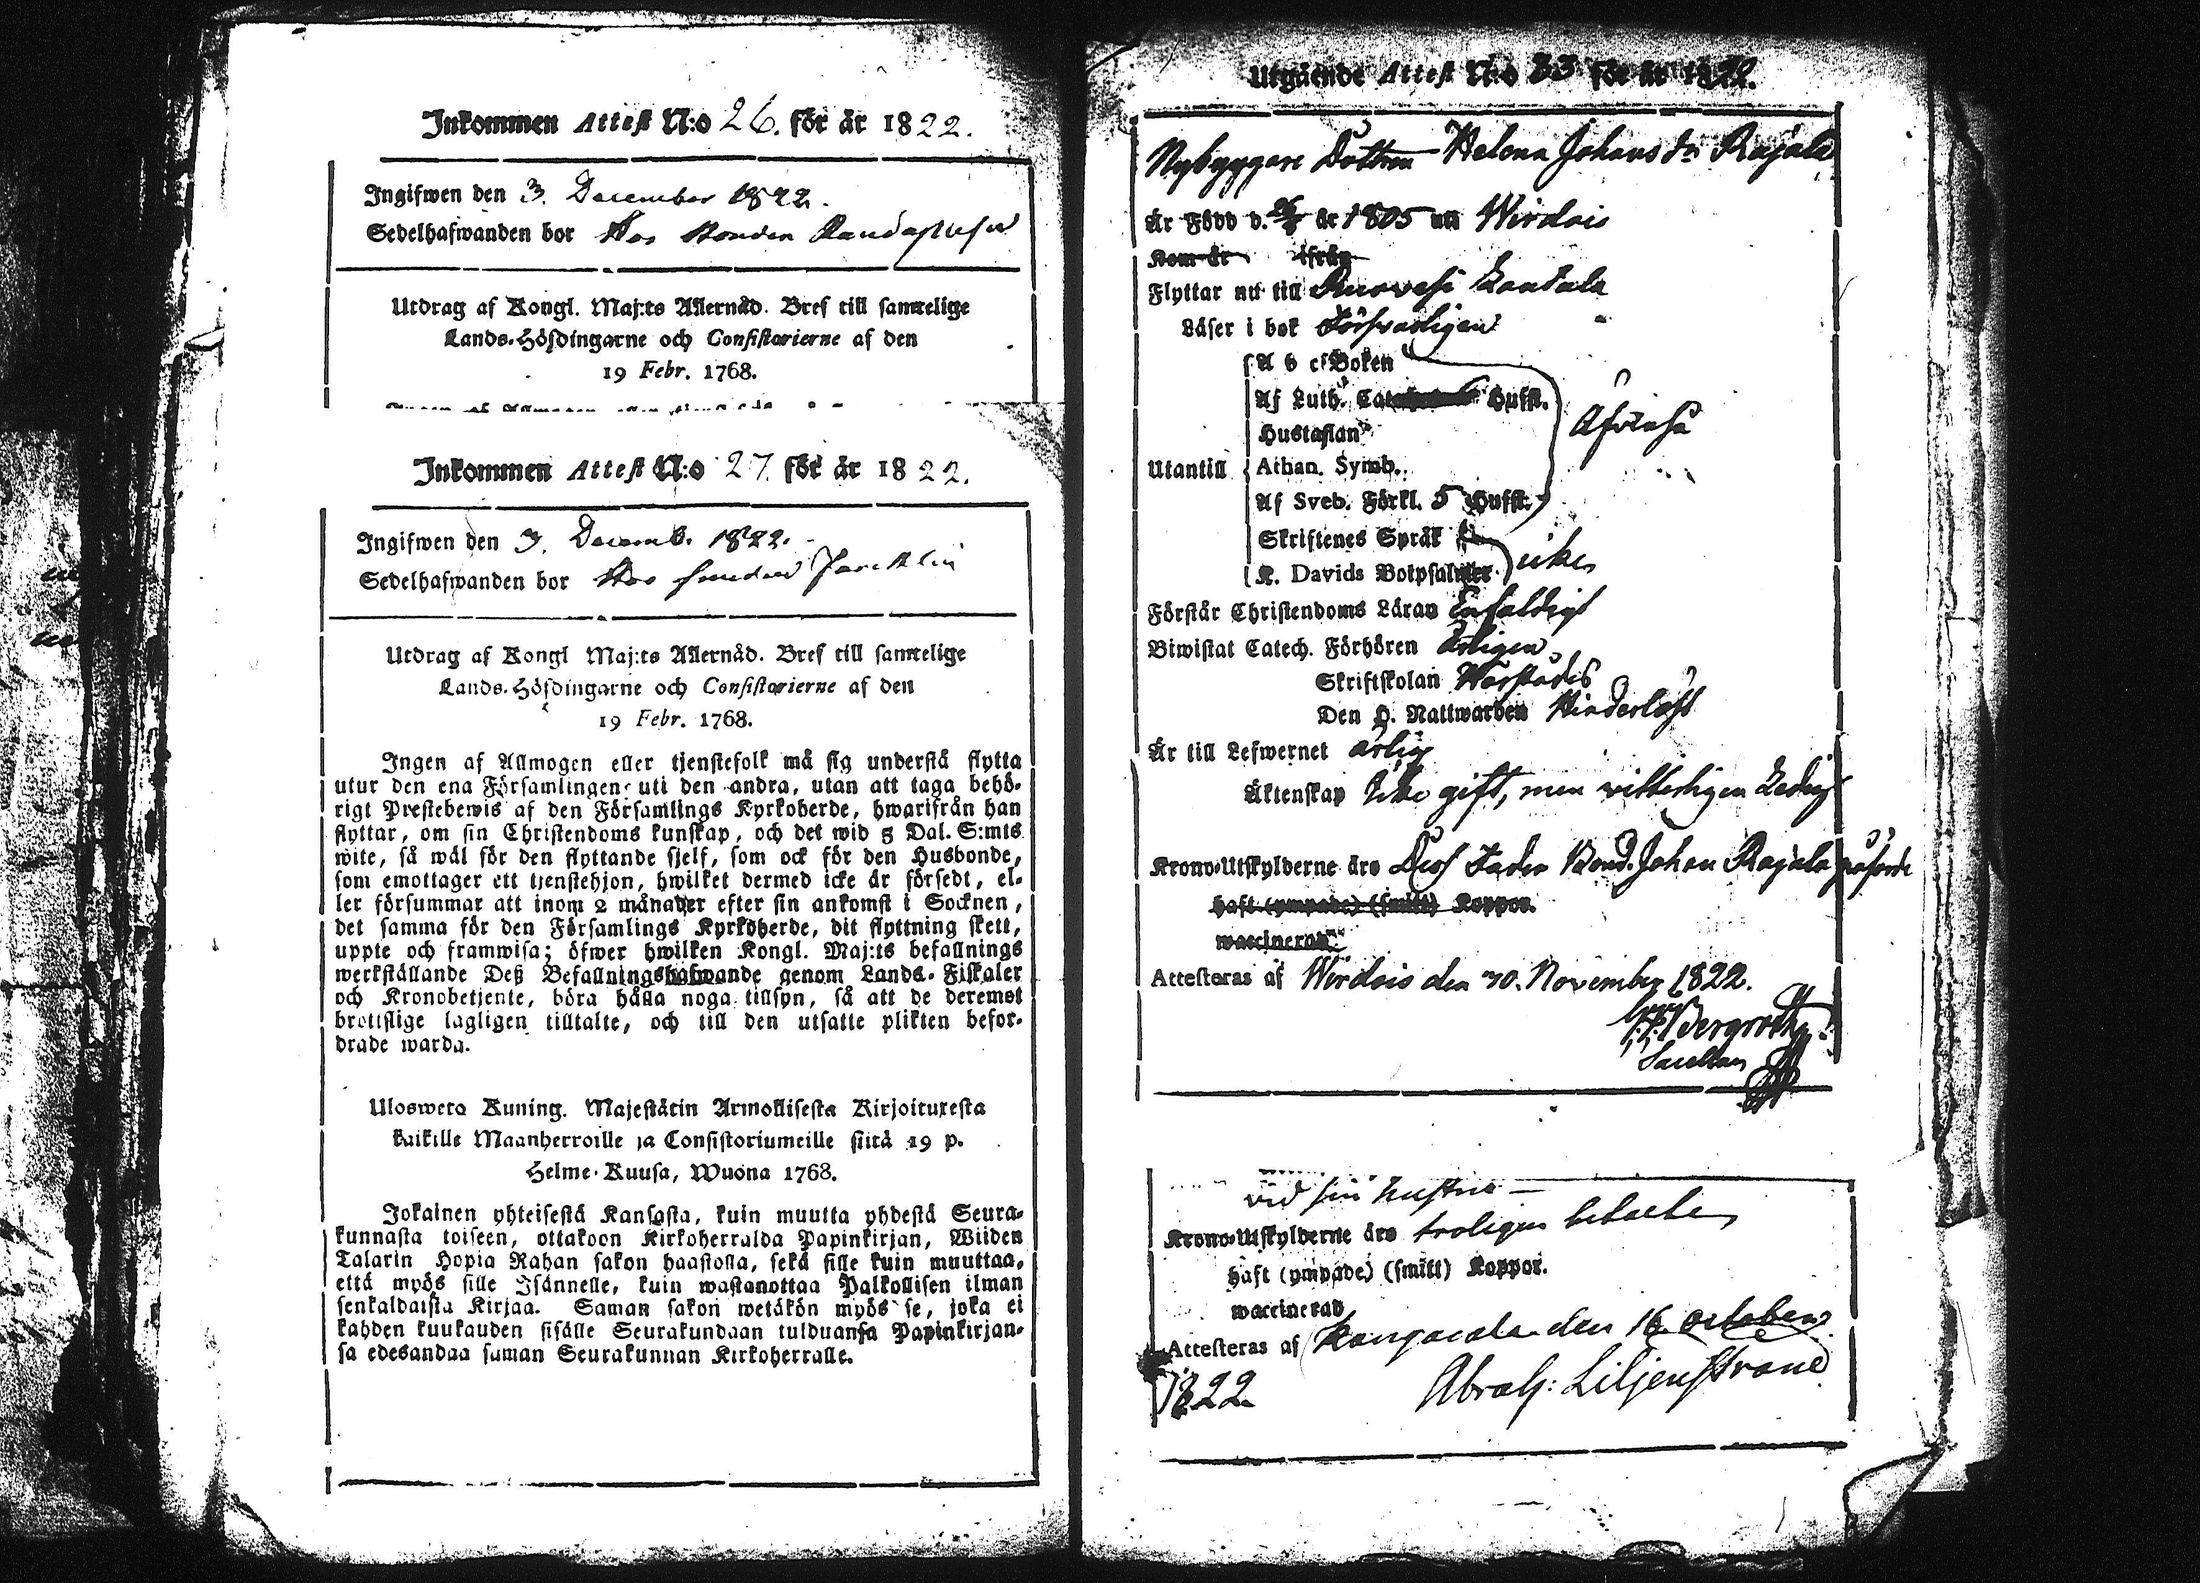 Inkommen Attest N:o 26. för år 1822.
Ingifwen den 3. December 1822.
Sedelhafwanden bor Hos Bonden
Utdrag af Kongl. Maj:ts Allernåd. Bref till samtelige
Lands-Höfdingarne och Consistorierne af den
19 Febr. 1768.
Inkommen Attest N:o 27. för år 1822.
Ingifwen den 3. Decemb. 1822.
Sedelhafwanden bor Hos
Utdrag af Kongl Maj:ts Allernåd. Bref till samtelige
Lands-Höfdingarne och Consistorierne af den
19 Febr. 1768.
Ingen af Allmogen eller tjenstefolk må sig understå flytta
utur den ena Församlingen uti den andra, utan att taga behö-
rigt Prestebewis af den Församlings Kyrkoherde, hwarifrån han
flyttar, om sin Christendoms kunskap, och det wid 5 Dal. S:mts
wite, så wäl för den flyttande sjelf, som ock för den Husbonde,
som emottager ett tjenstehjon, hwilket dermed icke är försedt, el-
ler försummar att inom 2 månader efter sin ankomst i Socknen,
det samma för den Församlings Kyrkoherde, dit flyttning skett,
uppte och framwisa; öfwer hwilken Kongl. Maj:ts befallnings
werkställande Deß Befallningshafwande genom Lands-Fiskaler
och Kronobetjente, böra hålla noga tillsyn, så att de deremot
brottslige lagligen tilltalte, och till den utsatte plikten befor-
drade warda.
Ulosweto Kuning. Majestätin Armollisesta Kirjoituxesta
kaikille Maanherroille ja Consistoriumeille siitä 19 p.
Helme-Kuusa, Wuona 1768.
Jokainen yhteisestä Kansasta, kuin muutta yhdestä Seura-
kunnasta toiseen, ottakoon Kirkoherralda Papinkirjan, Wiiden
Talarin Hopia Rahan sakon haastolla, sekä sille kuin muuttaa,
että myös sille Isännelle, kuin wastanottaa Palkollisen ilman
senkaldaista Kirjaa. Saman sakon wetäkön myös se, joka ei
kahden kuukauden sisälle Seurakundaan tulduansa Papinkirjan-
sa edesandaa saman Seurakunnan Kirkoherralle.
Utgående Attest N:o 33 för år 1822.
Nybyggare Dottren Helena Johans dr Rajala
Är Född d. år 1805 uti Wirdois
Kom år ifrån
Flyttar nu till Ruovesi
Läser i bok Försvarligen
A b c Boken
Af Luth. Hufst.
Hustaflan
Utantill Athan. Symb.
Af Sveb. Förkl. 5 Hufst.
Skriftenes Språk
K. Davids Botpsalmer icke
Förstår Christendoms Läran Enfaldigt
Biwistat Catech. Förhören årligen
Skriftskolan
Den H. Nattwarden Hinderlöst
Är till Lefwernet ärlig
Äktenskap Icke gift, men vitterligen Ledig
Krono-Utskylderne äro Dess Fader Bond. Johan Rajala påförde
haft (ympade) (smitt) Koppor.
waccinerad
Attesteras af Wirdois den 30. November 1822.
Bergroth
Sacellan
vid sin hustru
Krono-Utskylderne äro troligen betalte
haft (ympade) (smitt) Koppor.
waccinerad
Attesteras af Kangasala den 16 October
1822 Abrah: Liljenstrand